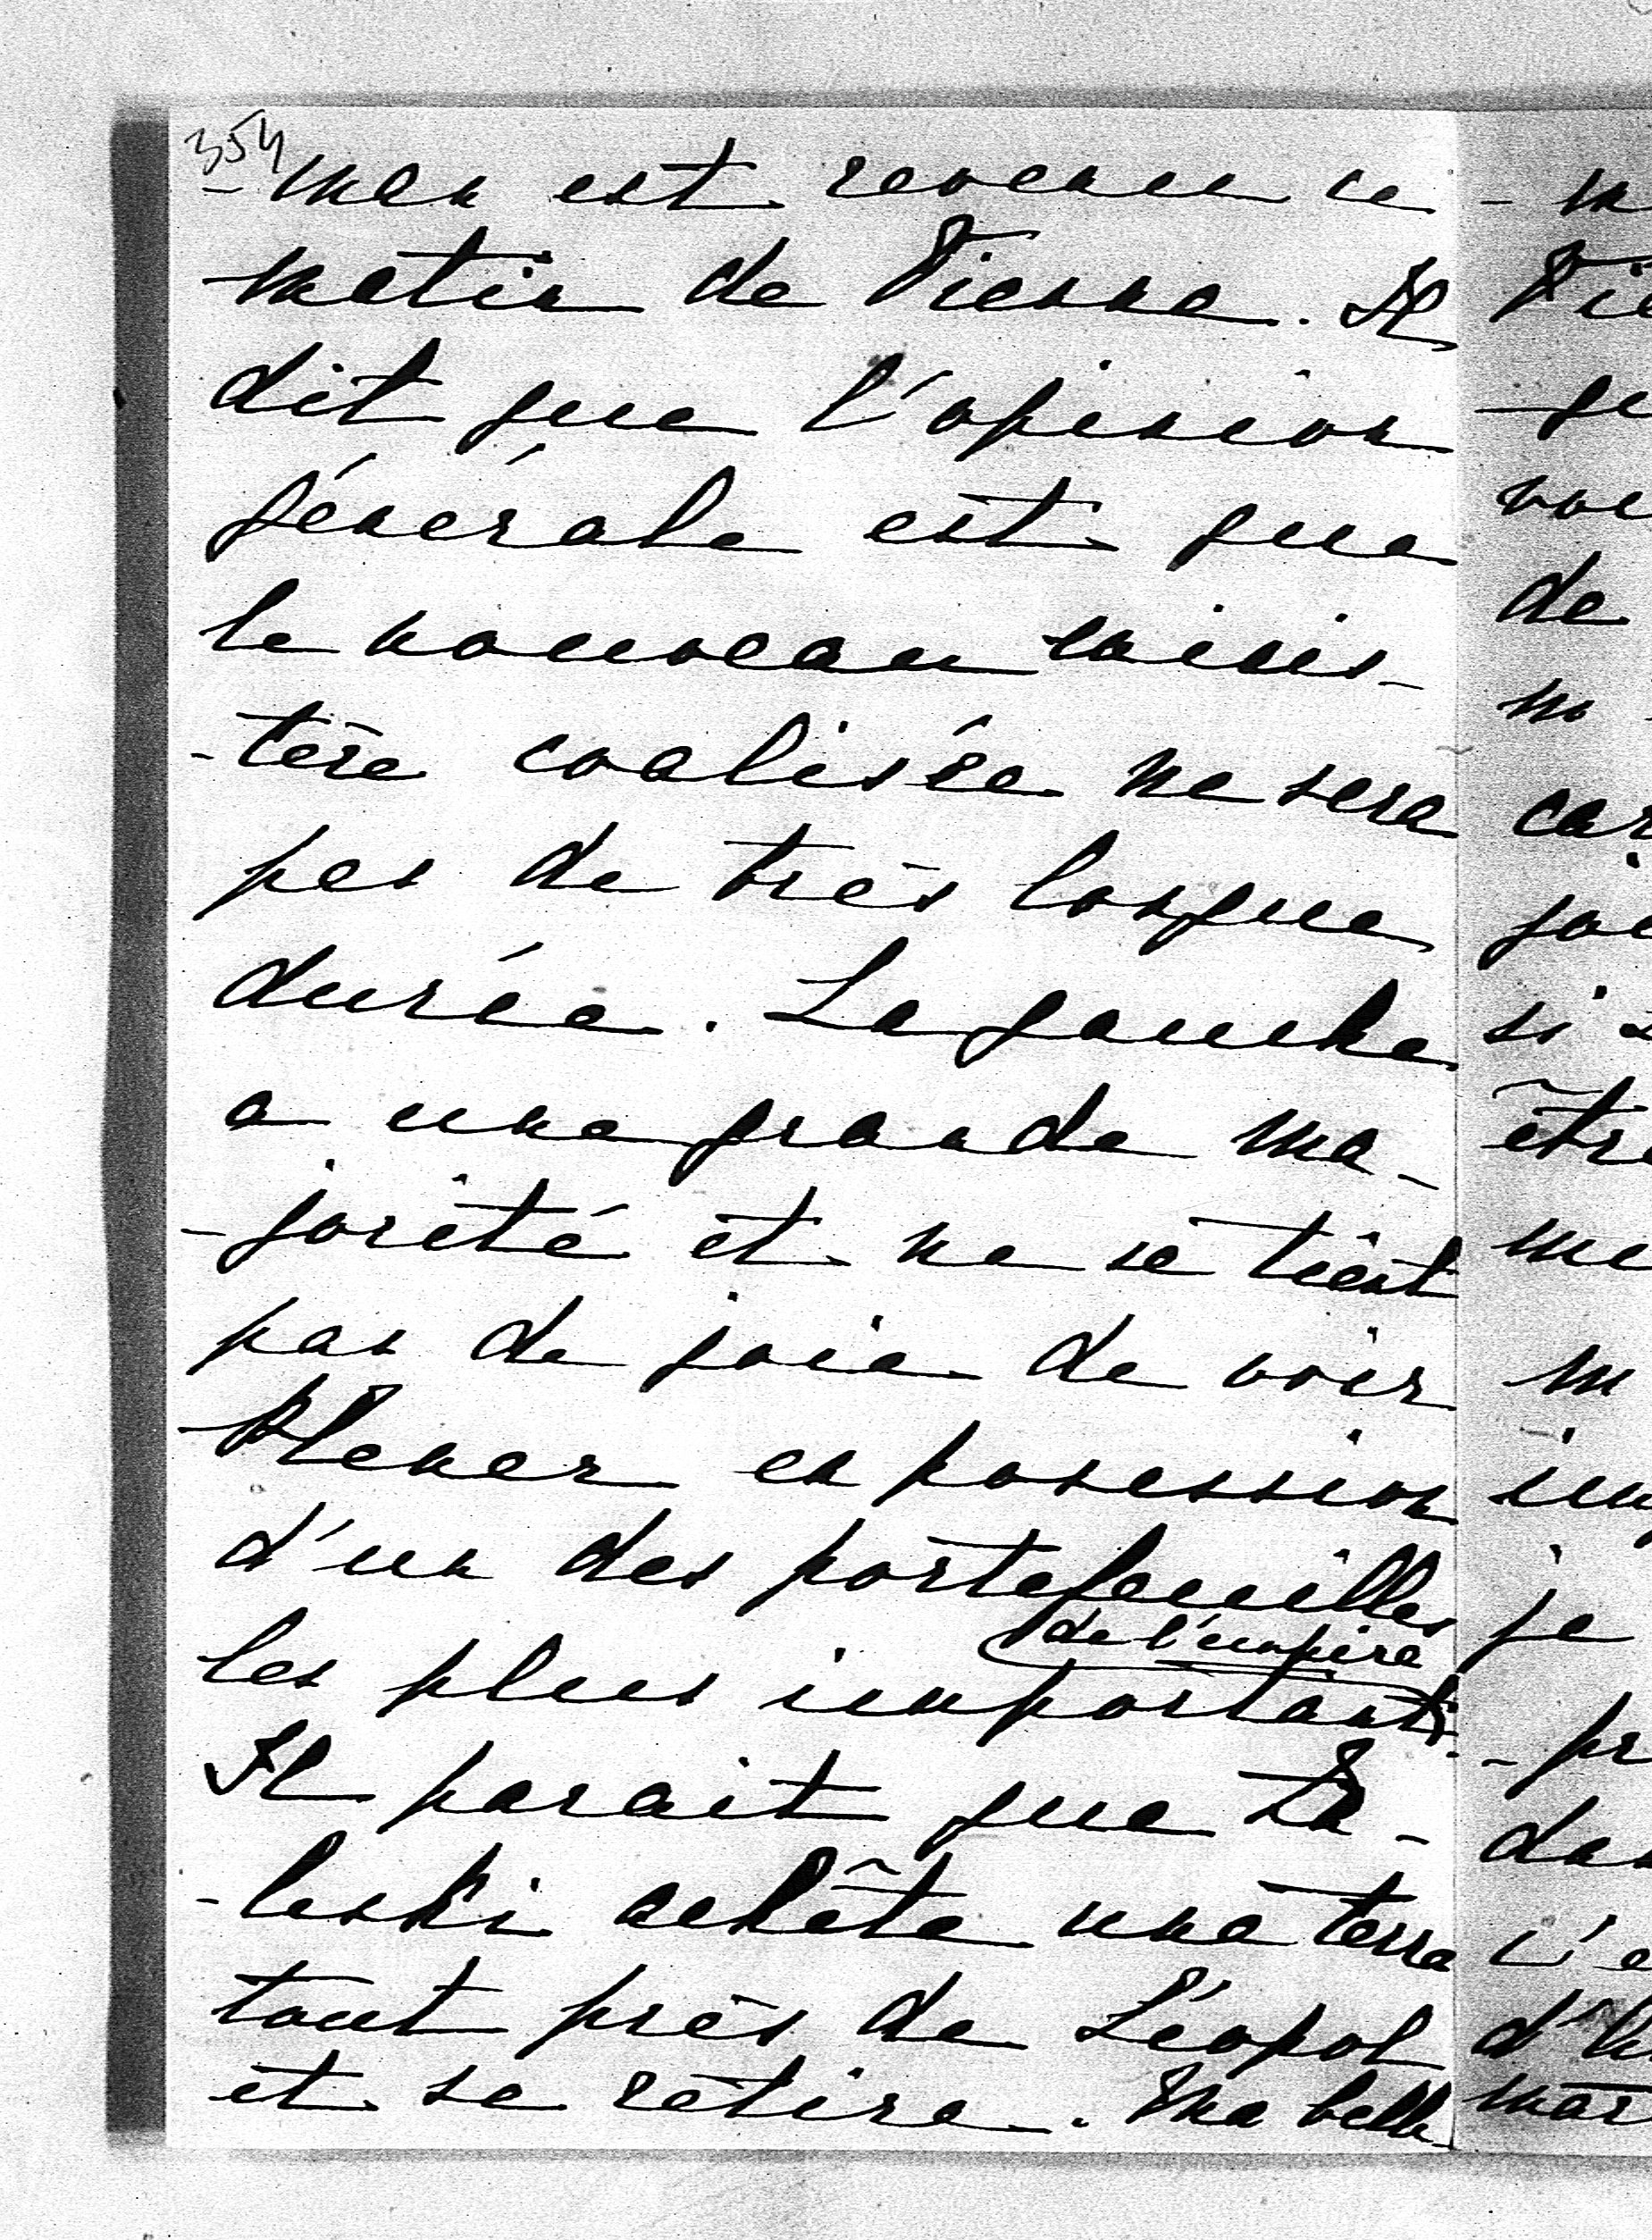 354
-man est revenu ce
matin de Vienne. Il
dit que l'opinion
générale est que
le nouveau minis-
-tère coalisée ne sera
pas de très longue
durée. La gauche
a une grande ma-
-jorité et ne se tient
pas de joie de voir
Plener en posession
d'un des portefeuilles
de l'empire
les plus importants.
Il parait que Za-
-leski achête une terre
tout près de Léopol
et se retire. Ma belle